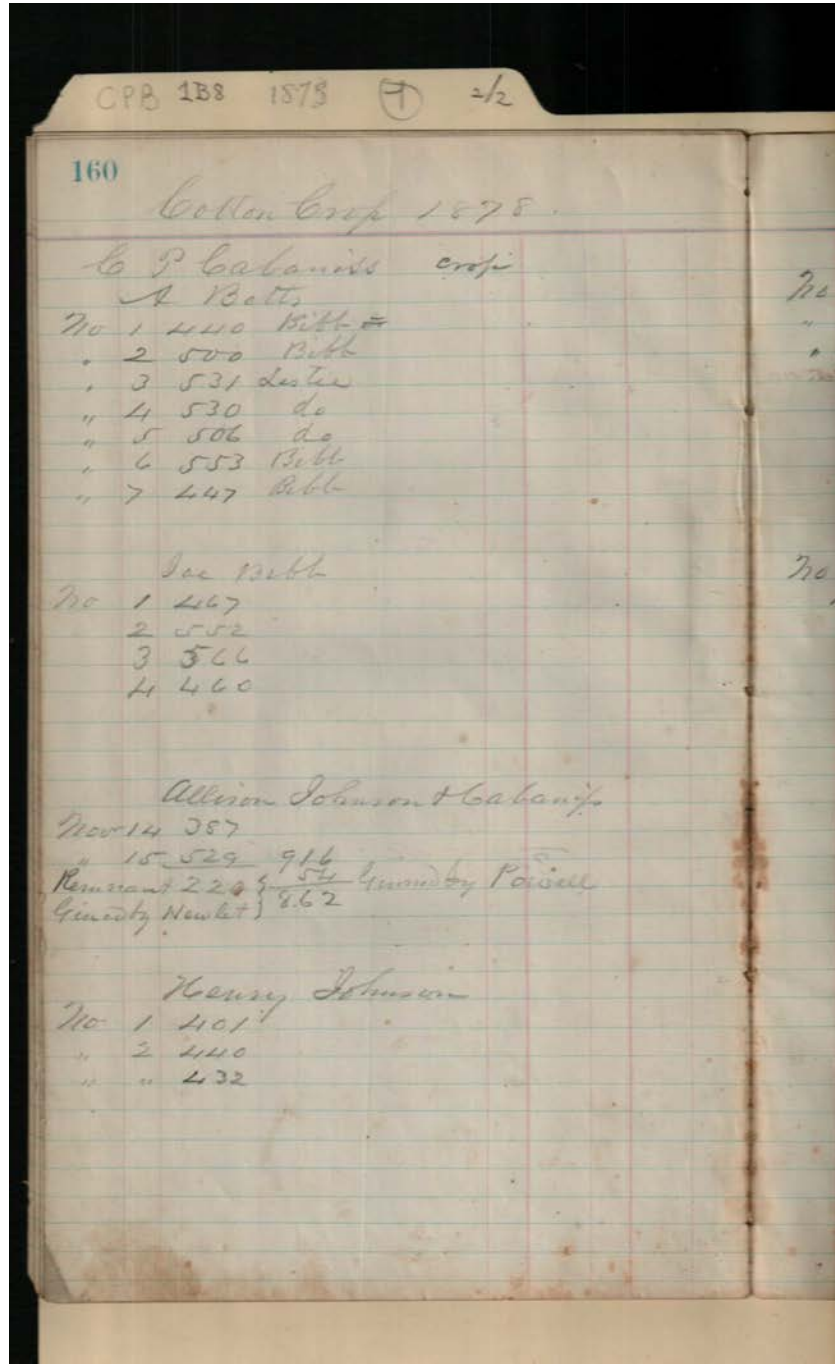 CPB 1B8 1873 1 2/2
160
Cotton Crop 1878.
C P Cabaniss crop
A Betts
No 1 440 Bibb =
" 2 500 Bibb
" 3 531 Lester
" 4 530 do
" 5 506 do
" 6 553 Bibb
" 7 447 Bibb
Joe Bibb
No 1 467
2 552
3 566
4 460
Allison Johnson & Cabaniss
Nov 14 387
" 15 529 916
Remnant 220 } 54 Ginned by Powell
Gined by } 862
Henry Johnson
No 1 401
" 2 440
" " 432
No
"
"
No